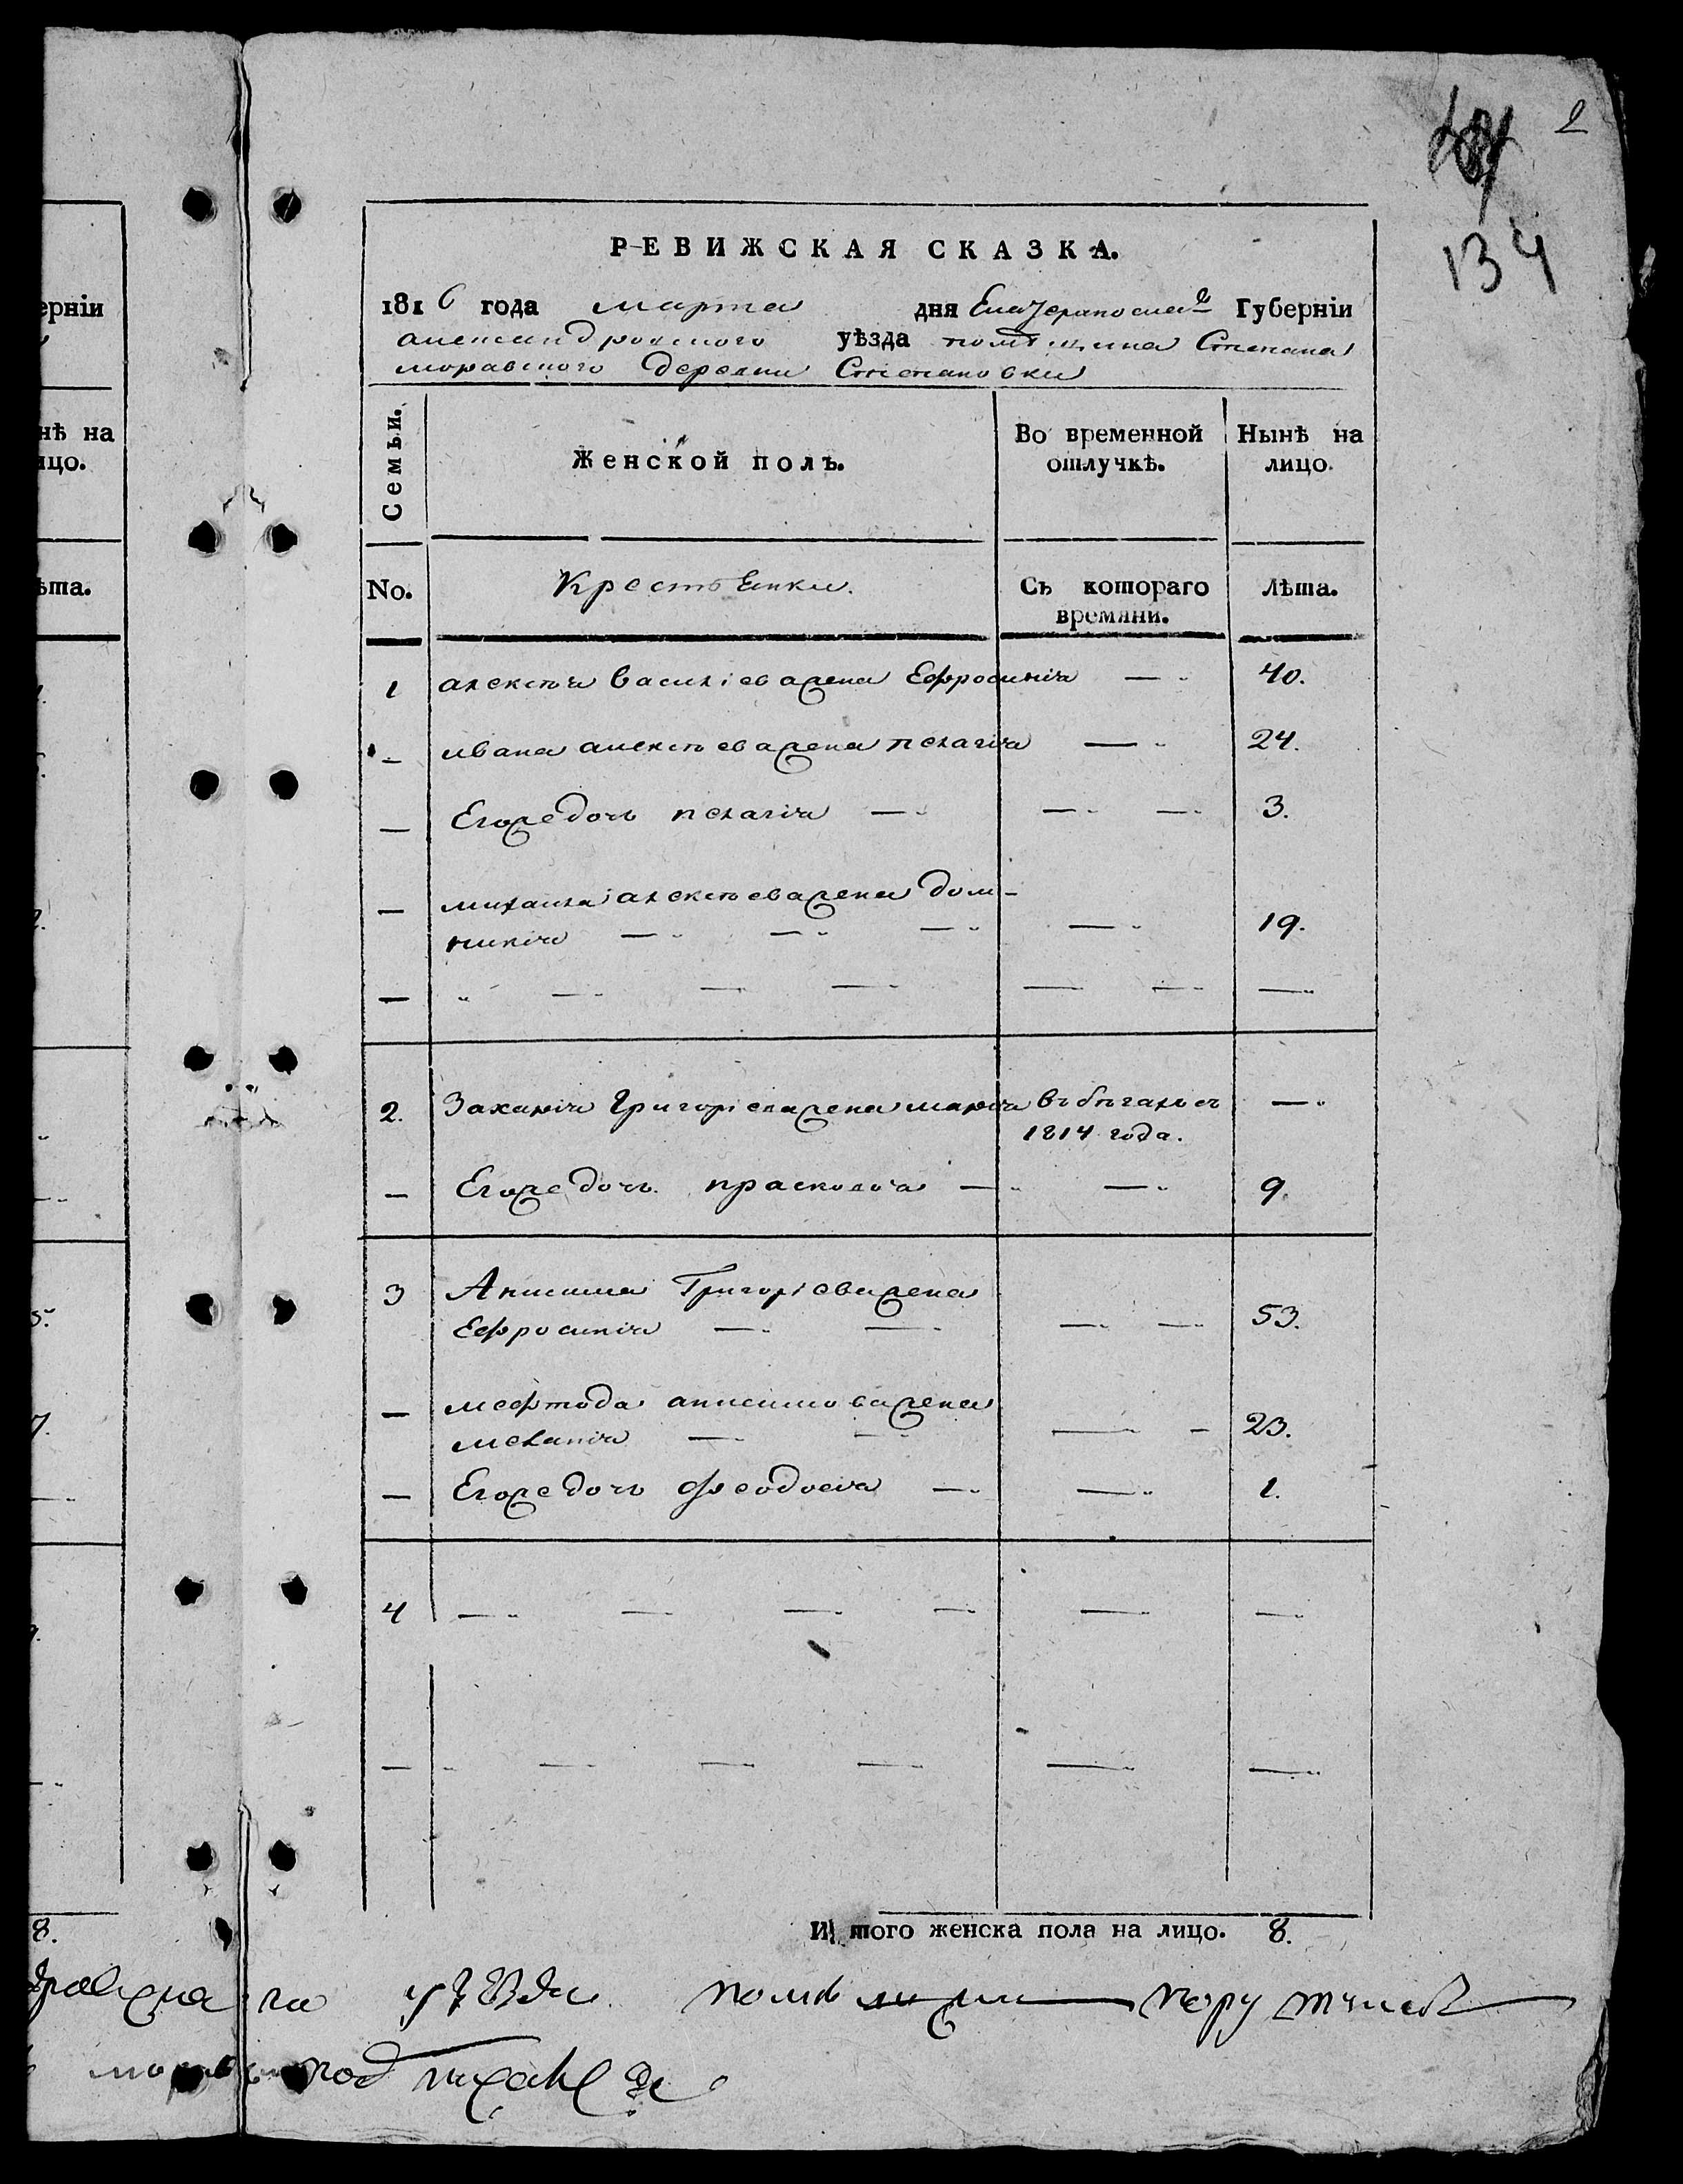 2
134
РЕВИЖСКАЯ СКАЗКА.
1816 года марта дня Екатеринослав Губерніи
александровского уѣзда помѣщика Степана
моравского деревни Степановки
Семьи.
Женской полъ.
Во временной отлучкѣ.
Нынѣ на лицо.
No.
Крестьянки.
Съ котораго времяни.
Лѣта.
1 алексѣя васильева жена Ефросинія — 40.
— ивана алексѣева жена пелагія — 24.
— Его же дочь пелагія — — — 3.
— михаила алексѣева жена дом-
никія — — — — 19.
— „ — — — — — —
2. Захарія Григорієва жена марія въ бѣгахъ съ —
1814 года.
— Его же дочь прасковья — — 9.
3 Анисима Григорієва жена
Ефросинія — — — — 53.
— мефтода анисимова жена
меланія — — — — 23.
— Его же дочь феодосія — — 1.
4 — — — — — —
— — — — — —
И того женска пола на лицо. 8.
уѣзда помѣщик
ерніи
нѣ на
ицо.
ѣта.
8.